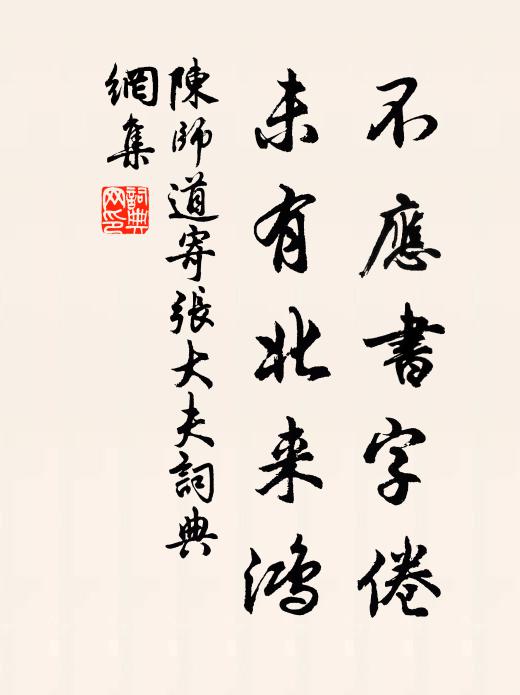 不應書字倦
未有北来鴻
陳師道寄張大夫詞典
網集
詞典網印